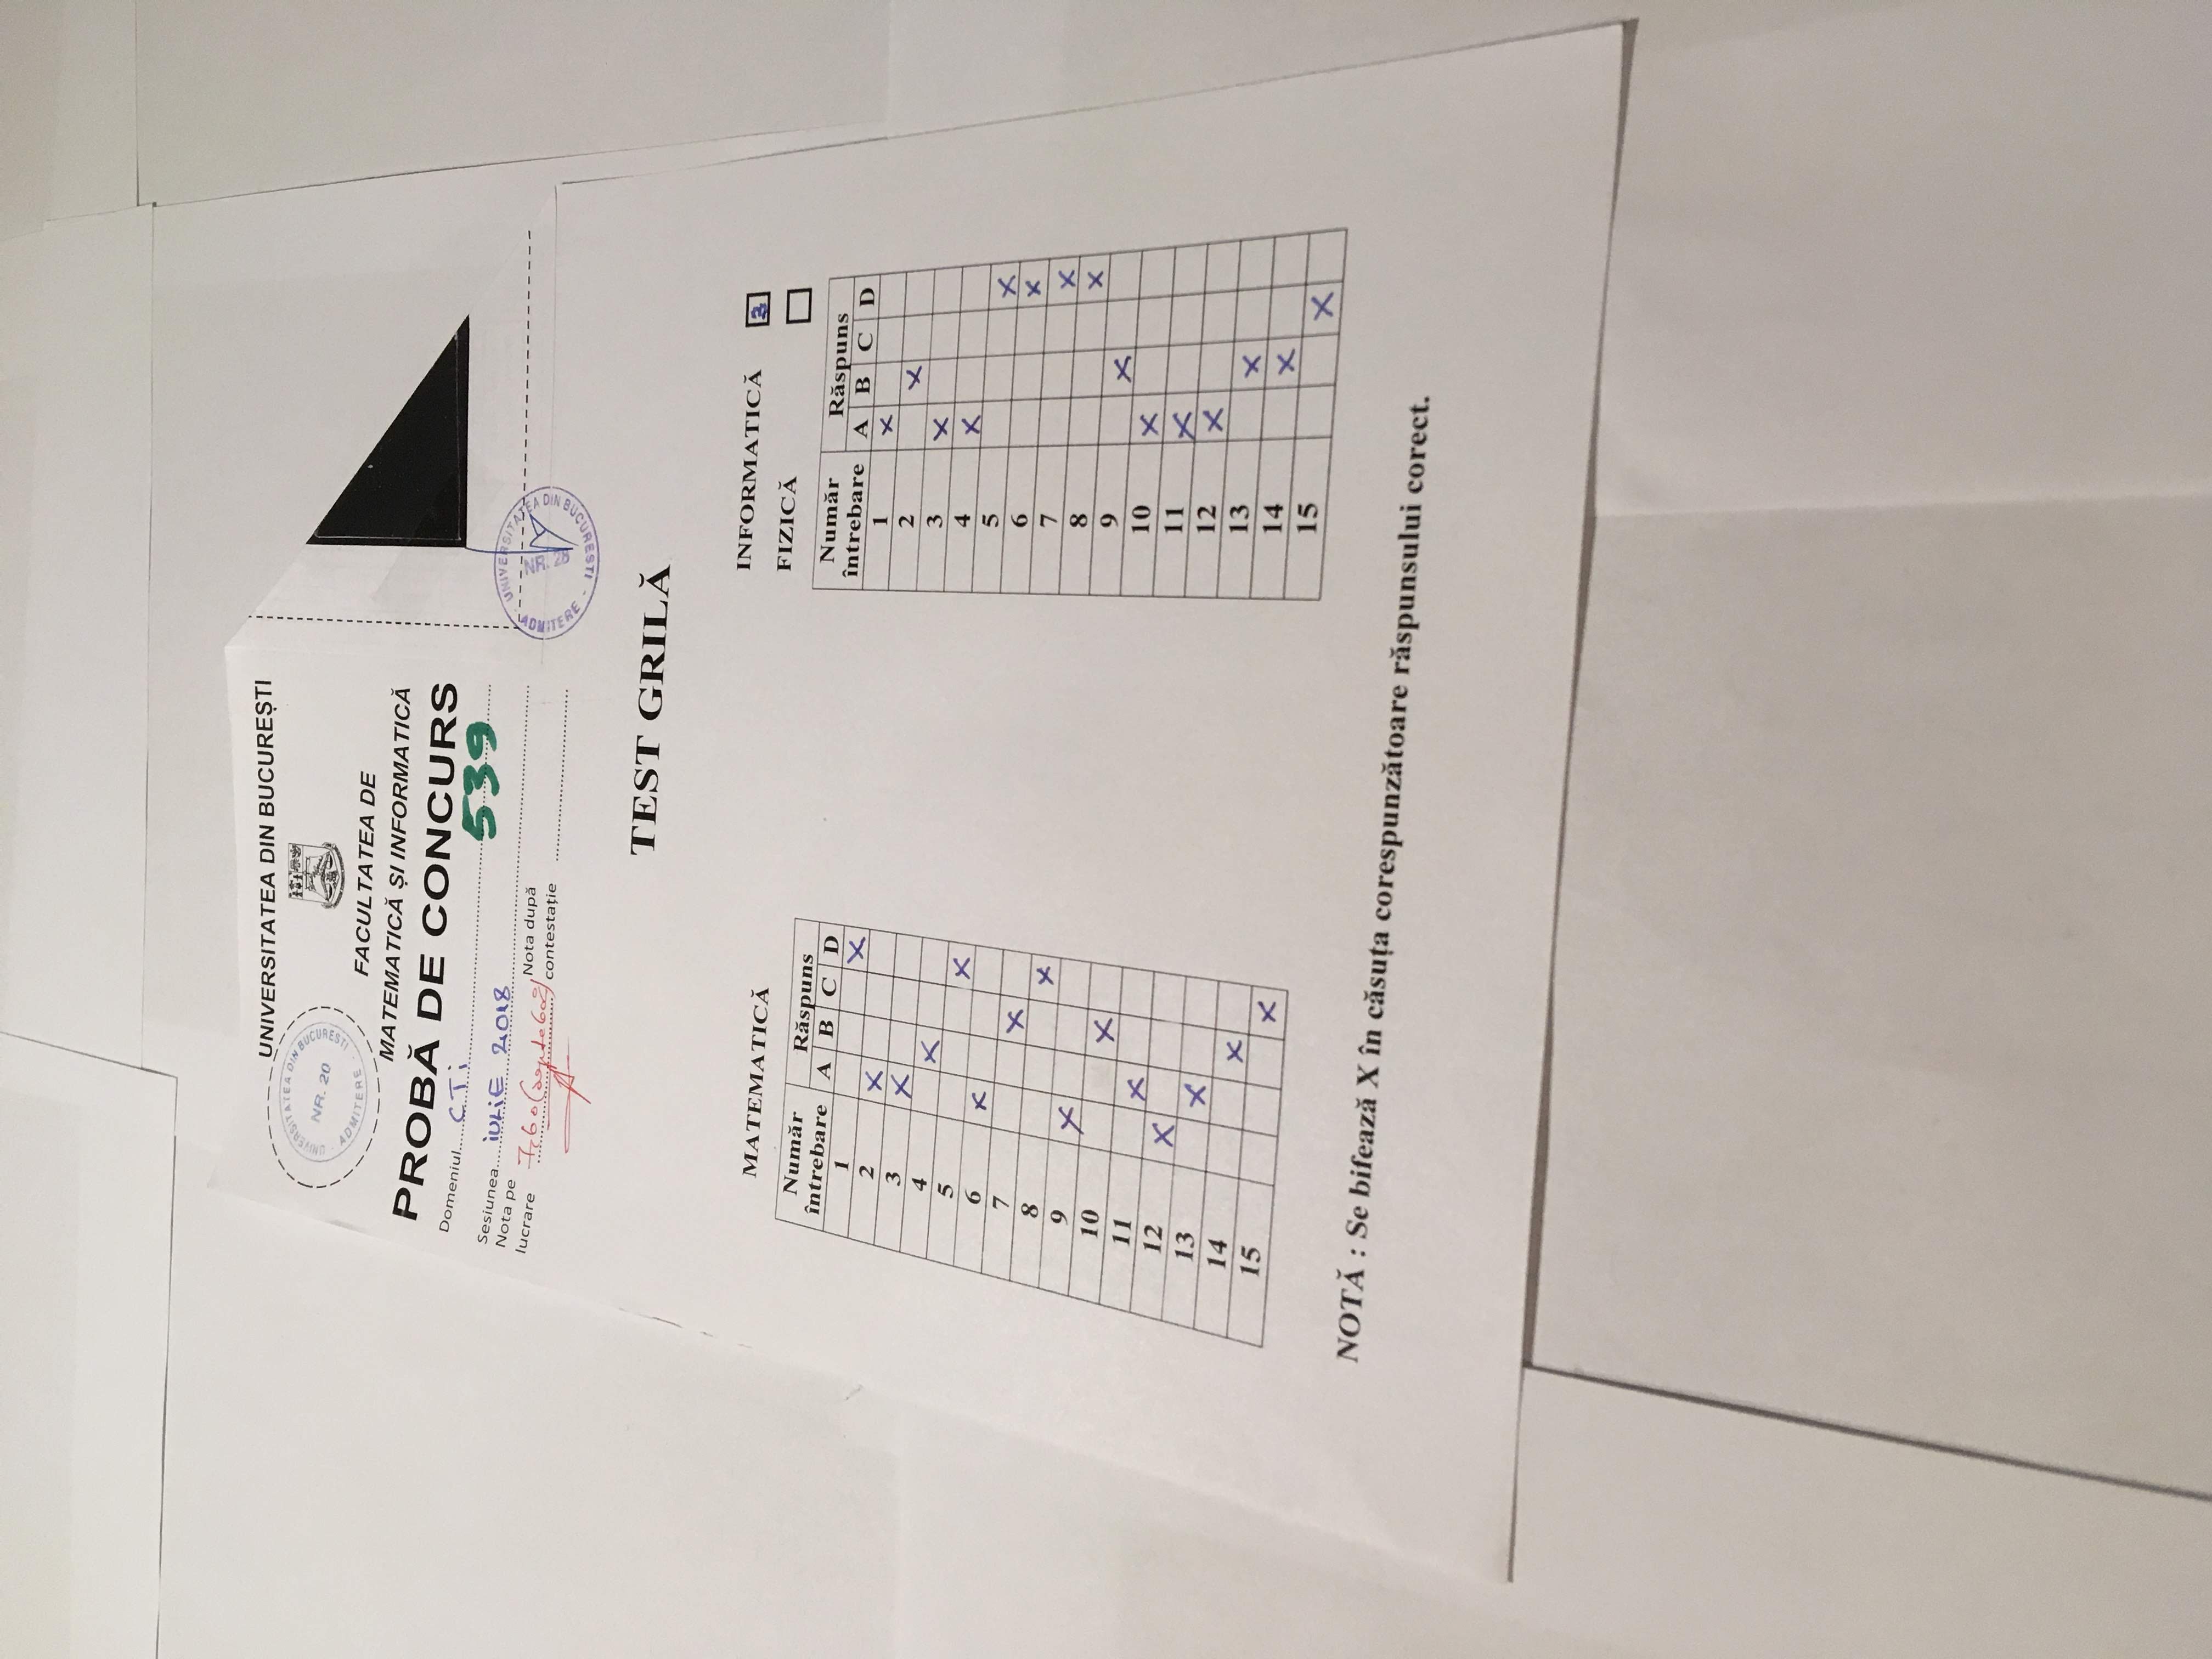 UNIVERSITATEA DIN BUCUREȘTI
UNIVERSITATEA DIN BUCURESTI
NR. 20
ADMITERE
FACULTATEA DE
MATEMATICĂ ȘI INFORMATICĂ
PROBĂ DE CONCURS
Domeniul CTi
539
Sesiunea iULiE 2018
Nota pe lucrare 7,60 (șapte 60%)
Nota după contestație
UNIVERSITATEA DIN BUCURESTI
ADMITERE
TEST GRILĂ
MATEMATICĂ
Număr întrebare Răspuns
A B C D
1 X
2 X
3 X
4 X
5 X
6 X
7 X
8 X
9 X
10 X
11 X
12 X
13 X
14 X
15 X
INFORMATICĂ 3
FIZICĂ
Număr întrebare Răspuns
A B C D
1 X
2 X
3 X
4 X
5 X
6 X
7 X
8 X
9 X
10 X
11 X
12 X
13 X
14 X
15 X
NOTĂ : Se bifează X în căsuța corespunzătoare răspunsului corect.